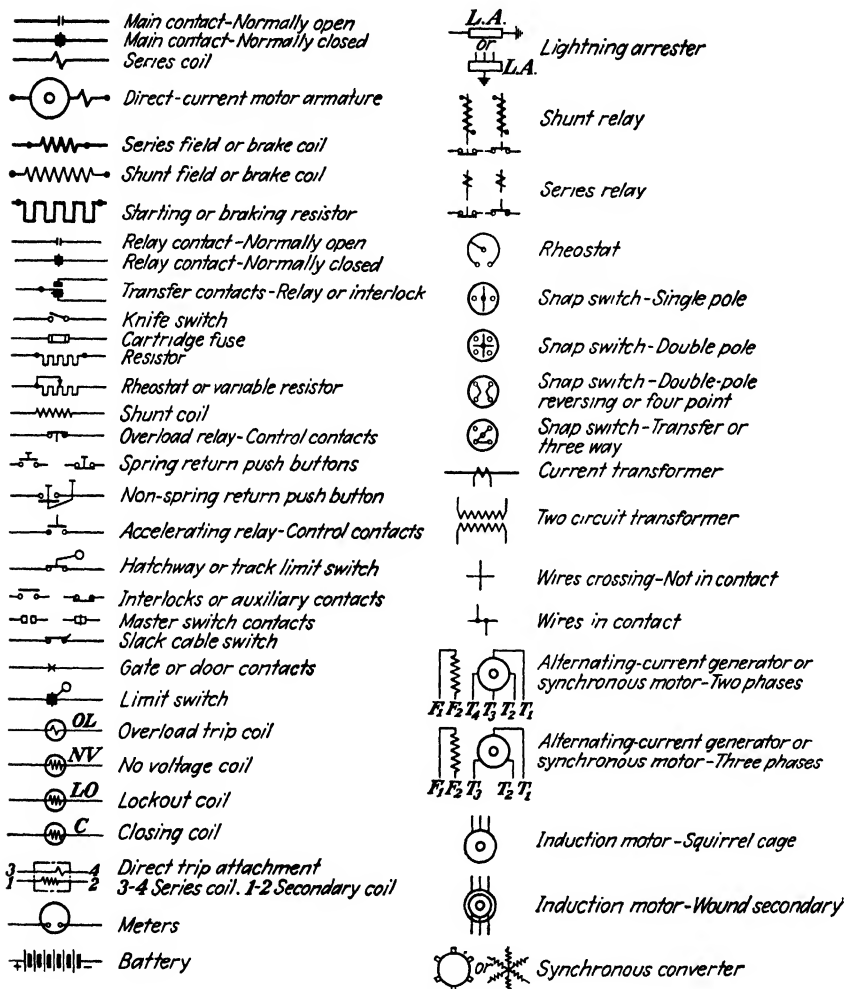 Main contact-Normally open
Main contact-Normally closed
Series coil
Direct-current motor armature
Series field or brake coil
Shunt field or brake coil
Starting or braking resistor
Relay contact-Normally open
Relay contact-Normally closed
Transfer contacts-Relay or interlock
Knife switch
Cartridge fuse
Resistor
Rheostat or variable resistor
Shunt coil
Overload relay-Control contacts
Spring return push buttons
Non-spring return push button
Accelerating relay-Control contacts
Hatchway or track limit switch
Interlocks or auxiliary contacts
Master switch contacts
Slack cable switch
Gate or door contacts
Limit switch
OL Overload trip coil
NV No voltage coil
LO Lockout coil
C Closing coil
3 4 Direct trip attachment
1 2 3-4 Series coil. 1-2 Secondary coil
Meters
+ - Battery
L.A.
or Lightning arrester
L.A.
Shunt relay
Series relay
Rheostat
Snap switch-Single pole
Snap switch-Double pole
Snap switch-Double-pole
reversing or four point
Snap switch-Transfer or
three way
Current transformer
Two circuit transformer
Wires crossing-Not in contact
Wires in contact
Alternating-current generator or
synchronous motor-Two phases
F1 F2 T4 T3 T2 T1
Alternating-current generator or
synchronous motor-Three phases
F1 F2 T3 T2 T1
Induction motor-Squirrel cage
Induction motor-Wound secondary
or Synchronous converter